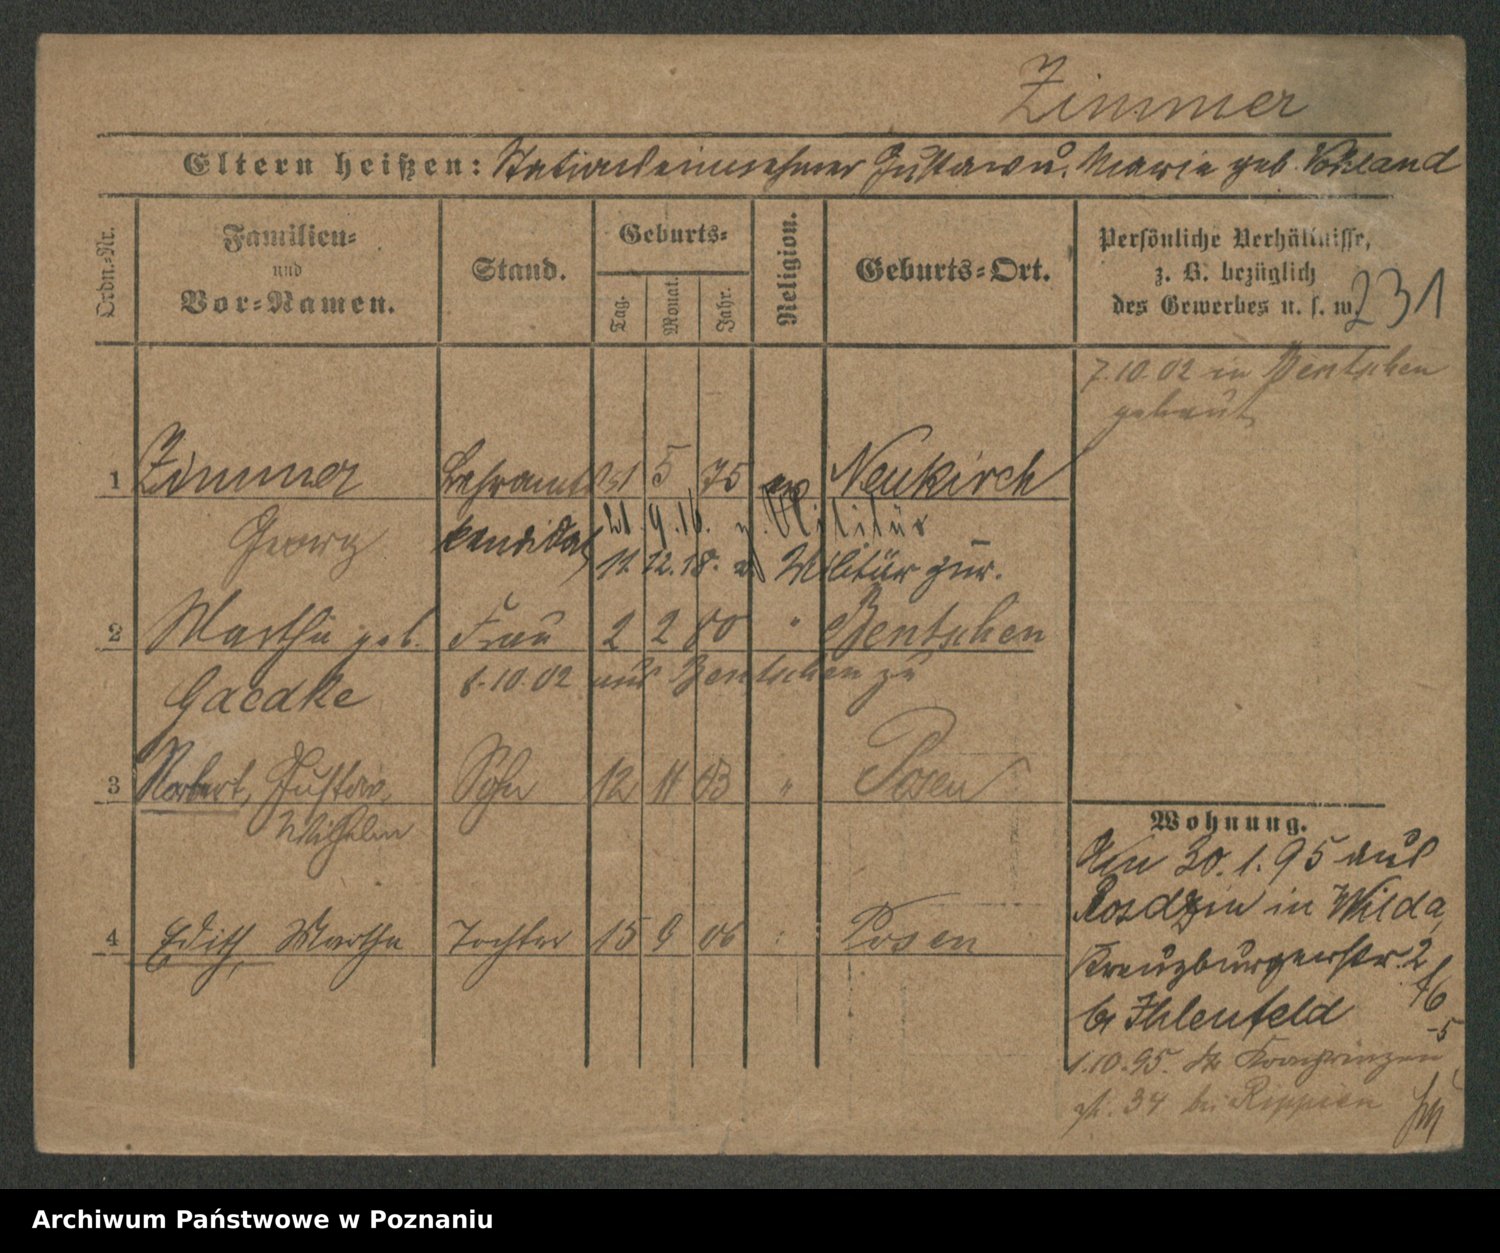 Zimmer
Eltern heißen: Stationseinnehmer Gustav u. Marie geb. Volland
Ordn.-Nr.
Familien-
und
Vor-Namen.
Stand.
Geburts-
Tag.
Monat.
Jahr.
Religion.
Geburts-Ort.
Persönliche Verhältnisse,
z. B. bezüglich
des Gewerbes u. s. w.
231
7.10.02 in Bentschen
getraut
1 Zimmer Lehramts 21 5 75 ev Neukirch
Georg kandidat 21.9.16. z. Militär
11.12.18. v. Militär zur.
2 Martha geb. Frau 2 2 80 " Bentschen
Gaedke 8.10.02 aus Bentschen zu
3 Norbert, Gustav, Sohn 12 11 03 " Posen
Wilhelm
4 Edith, Martha Tochter 15 9 06 : Posen
Wohnung.
Den 30.1.95 aus
Rosdzin in Wilda,
Kreuzburgerstr. 2
b/ Ihlenfeld
1.10.95. Kronprinzen
str. 34 bei Rippien
Archiwum Państwowe w Poznaniu